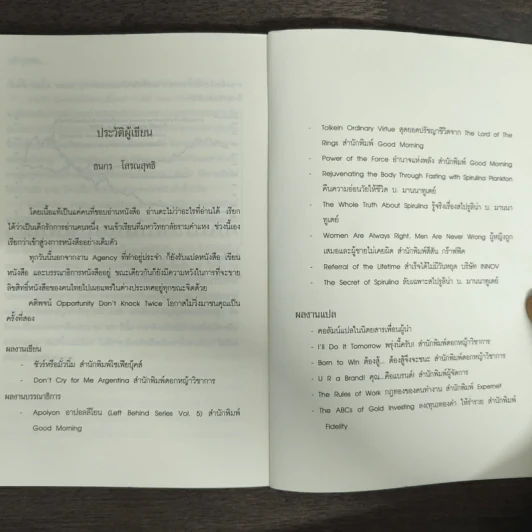 ประวัติผู้เขียน
ธนกร โสรณสุทธิ
โดยเนื้อแท้เป็นแค่คนที่ชอบอ่านหนังสือ อ่านดะไม่ว่าอะไรที่อ่านได้ เรียก
ได้ว่าเป็นเด็กรักการอ่านคนหนึ่ง จนเข้าเรียนที่มหาวิทยาลัยรามคำแหง ช่วงนี้เอง
เรียกว่าเข้าสู่วงการหนังสืออย่างเต็มตัว
ทุกวันนี้นอกจากงาน Agency ที่ทำอยู่ประจำ ก็ยังรับแปลหนังสือ เขียน
หนังสือ และบรรณาธิการหนังสืออยู่ ขณะเดียวกันก็ยังมีความหวังในการที่จะขาย
ลิขสิทธิ์หนังสือของคนไทยไปเผยแพร่ในต่างประเทศอยู่ทุกขณะจิตด้วย
คติพจน์ Opportunity Don't Knock Twice โอกาสไม่วิ่งมาชนคุณเป็น
ครั้งที่สอง
ผลงานเขียน
- ชัวร์หรือมั่วนิ่ม สำนักพิมพ์ไซเฟอบุ๊คส์
- Don't Cry for Me Argentina สำนักพิมพ์ดอกหญ้าวิชาการ
ผลงานบรรณาธิการ
- Apolyon อาปอลลีโยน (Left Behind Series Vol. 5) สำนักพิมพ์
Good Morning
- Tolkein Ordinary Virtue สุดยอดปรัชญาชีวิตจาก The Lord of The
Rings สำนักพิมพ์ Good Morning
- Power of the Force อำนาจแห่งพลัง สำนักพิมพ์ Good Morning
- Rejuvenating the Body Through Fasting with Spirulina Plankton
คืนความอ่อนวัยให้ชีวิต บ. มานนาทูเดย์
- The Whole Truth About Spirulina รู้จริงเรื่องสไปรูลิน่า บ. มานนา
ทูเดย์
- Women Are Always Right, Men Are Never Wrong ผู้หญิงถูก
เสมอและผู้ชายไม่เคยผิด สำนักพิมพ์สีสัน กร๊าฟฟิค
- Referral of the Lifetime สำเร็จได้ไม่มีวันหยุด บริษัท INNOV
- The Secret of Spirulina ลับเฉพาะสไปรูลิน่า บ. มานนาทูเดย์
ผลงานแปล
- คอลัมน์แปลในนิตยสารเพื่อนผู้นำ
- I'll Do It Tomorrow พรุ่งนี้ครับ! สำนักพิมพ์ดอกหญ้าวิชาการ
- Born to Win ต้องสู้... ต้องสู้จึงจะชนะ สำนักพิมพ์ดอกหญ้าวิชาการ
- U R a Brand! คุณ...คือแบรนด์! สำนักพิมพ์ผู้จัดการ
- The Rules of Work กฎทองของคนทำงาน สำนักพิมพ์ Expernet
- The ABCs of Gold Investing ลงทุนทองคำ ให้ร่ำรวย สำนักพิมพ์
Fidelity